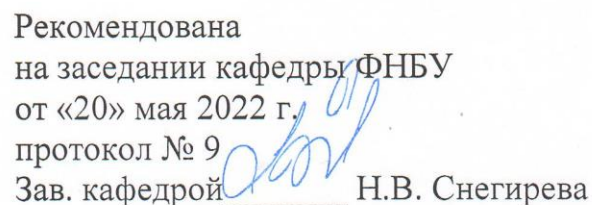 Рекомендована
на заседании кафедры ФНБУ
от «20» мая 2022 г.
протокол № 9
Зав. кафедрой Н.В. Снегирева